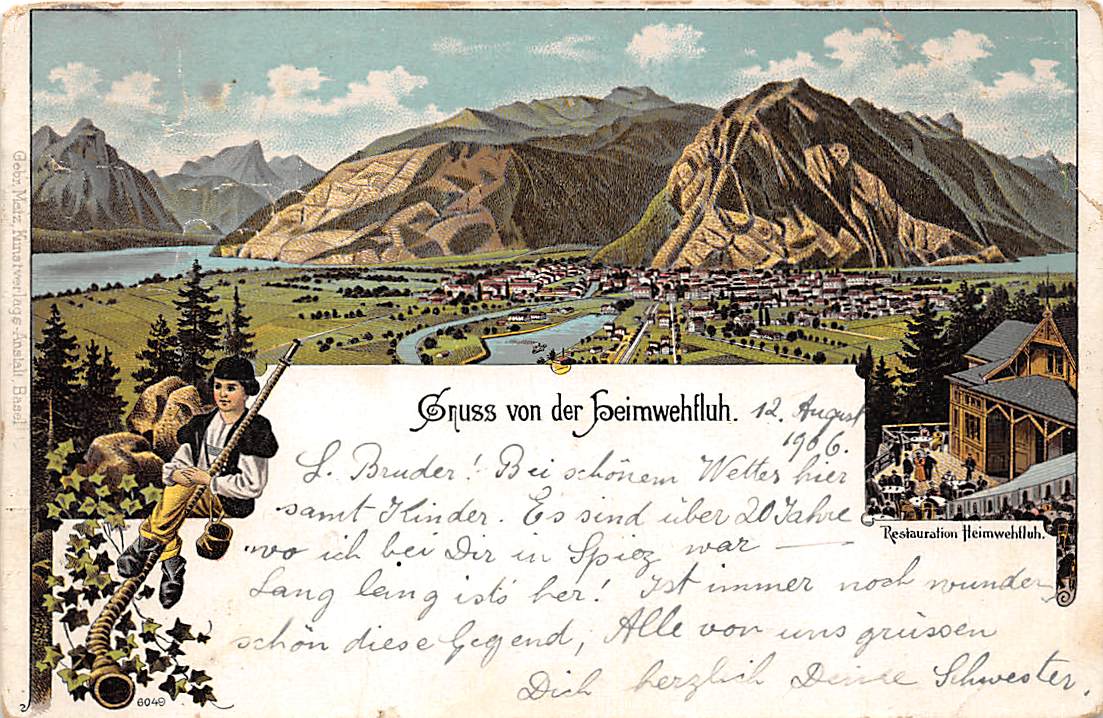 Gebr. Metz, Kunstverlags-Anstalt, Basel
Gruss von der Heimwehfluh.
12. August
1906.
L. Bruder! Bei schönem Wetter hier
samt Kinder. Es sind über 20 Jahre
wo ich bei Dir in Spiez war —
Lang lang ists her! Ist immer noch wunder
schön diese Gegend, Alle von uns grüssen
Dich herzlich Deine Schwester.
Restauration Heimwehfluh.
6049